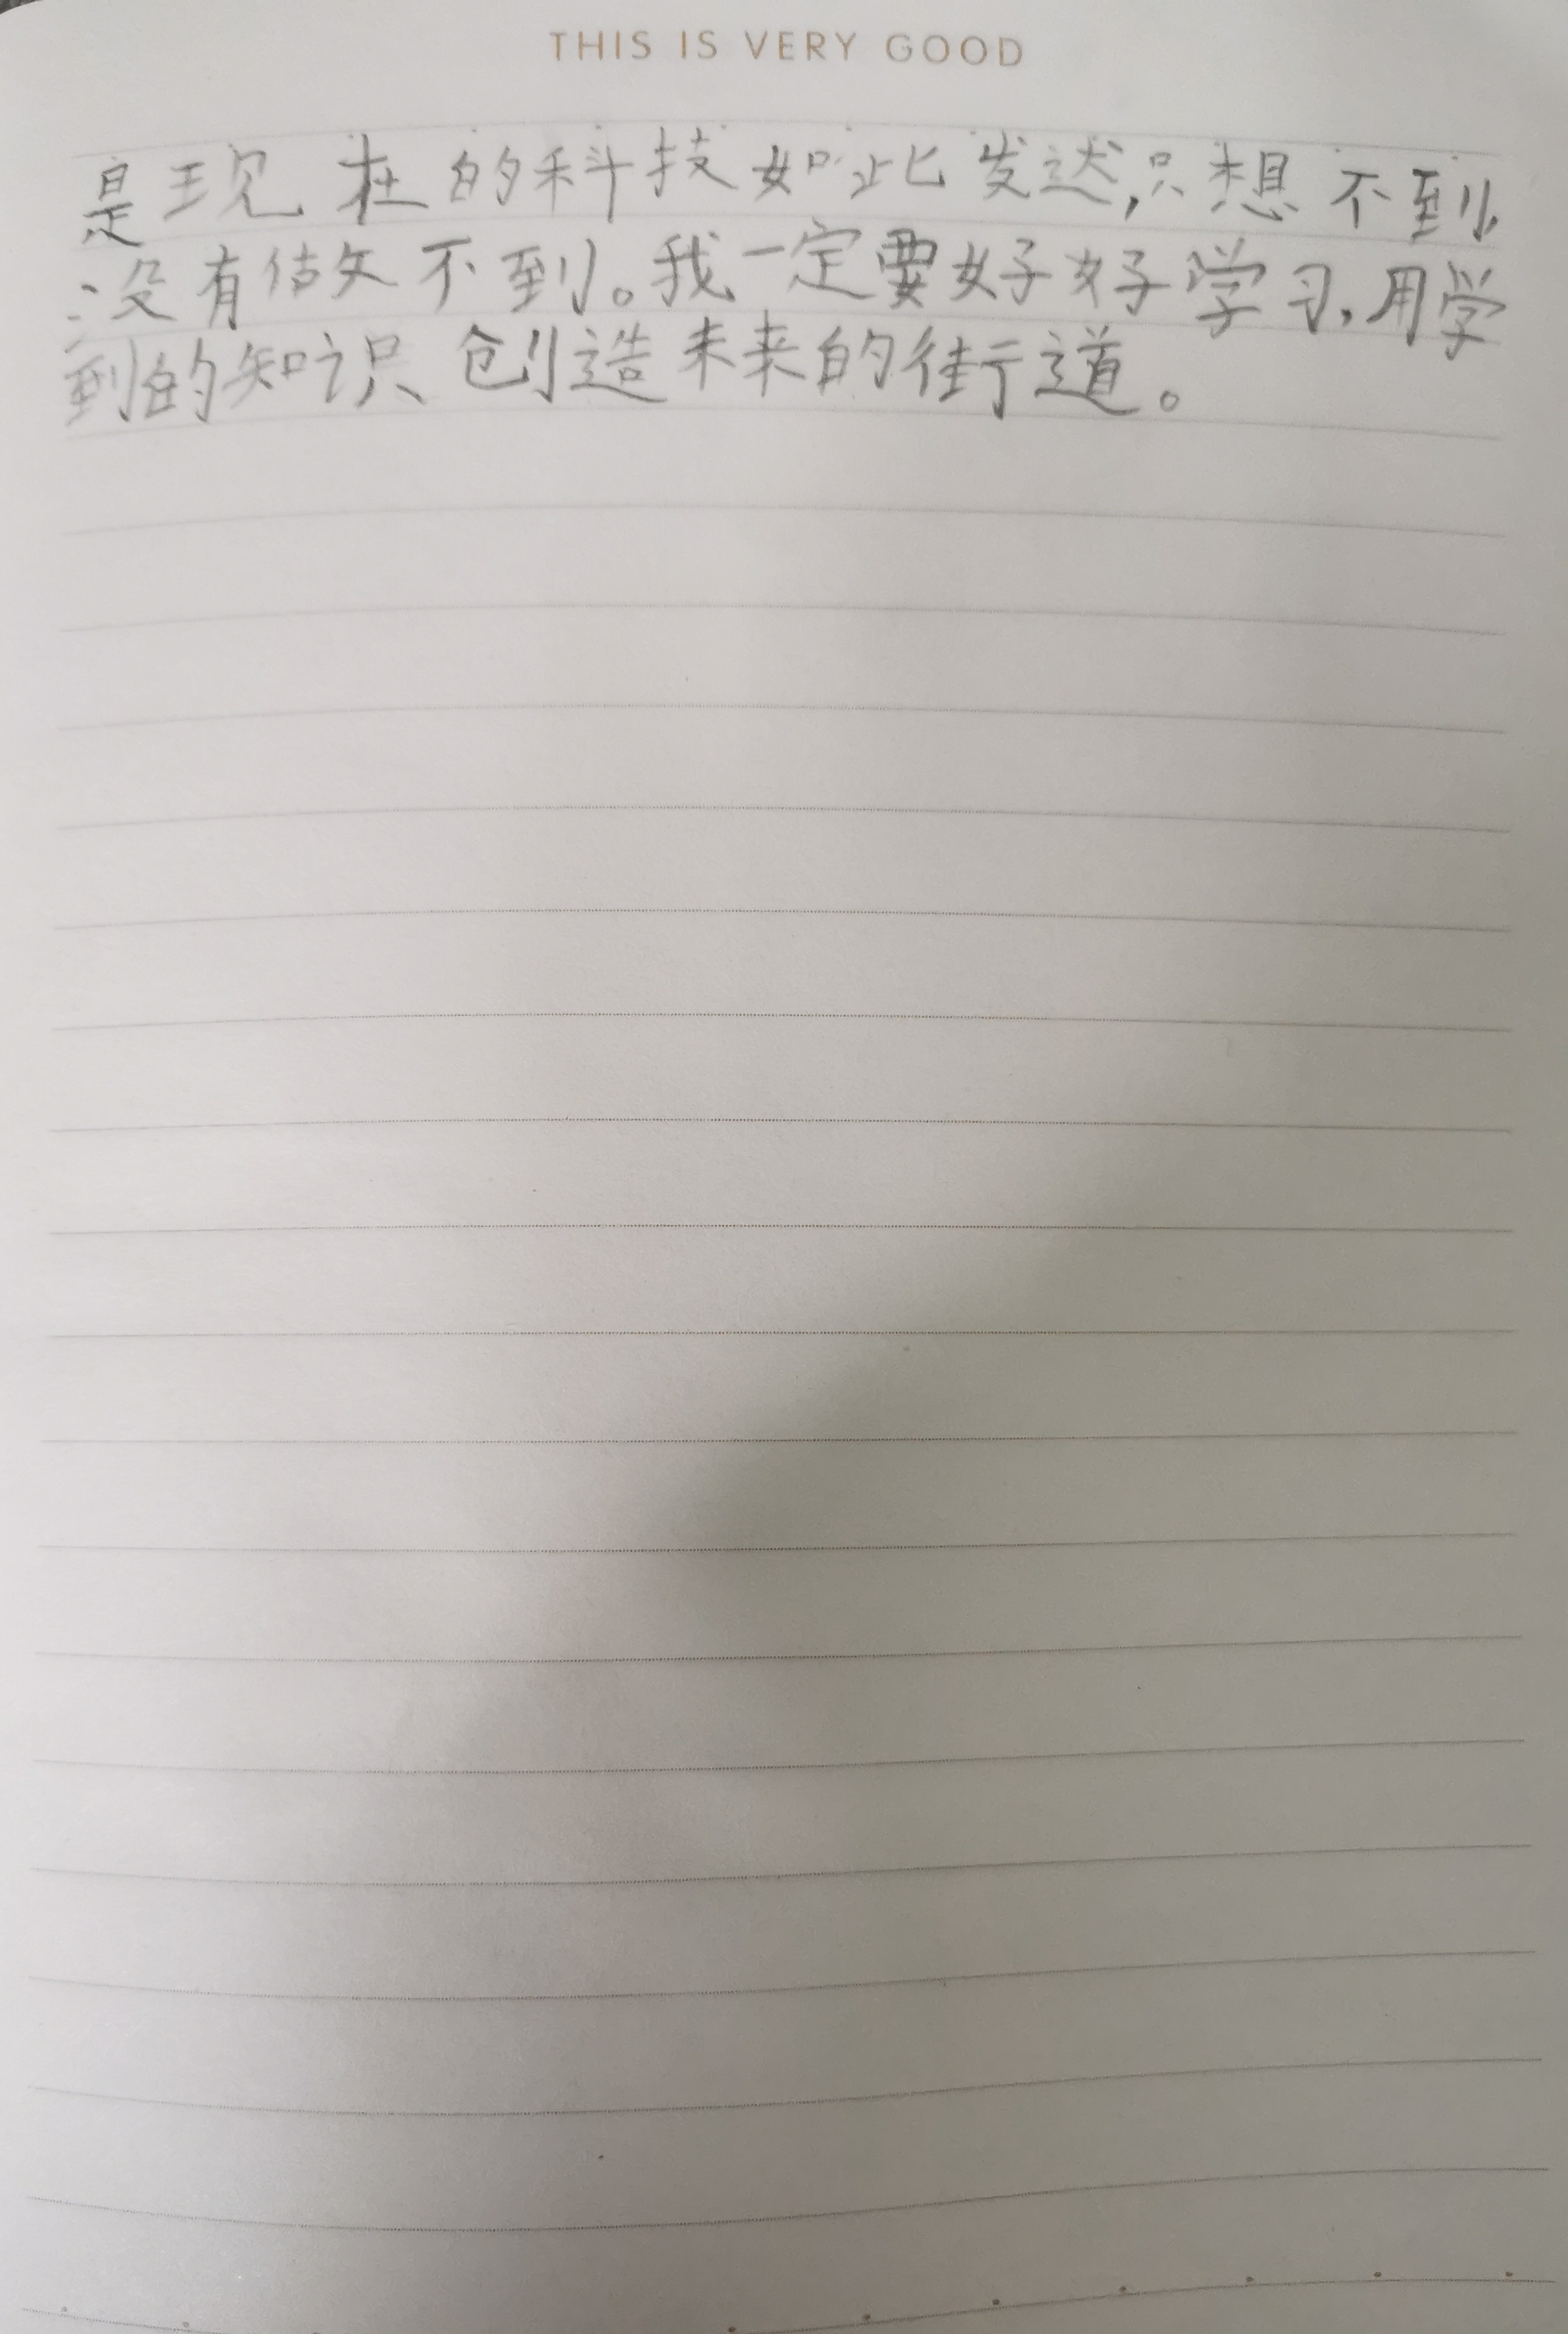 THIS IS VERY GOOD
是现在的科技如此发达,只想不到,
没有做不到。我一定要好好学习,用学
到的知识创造未来的街道。